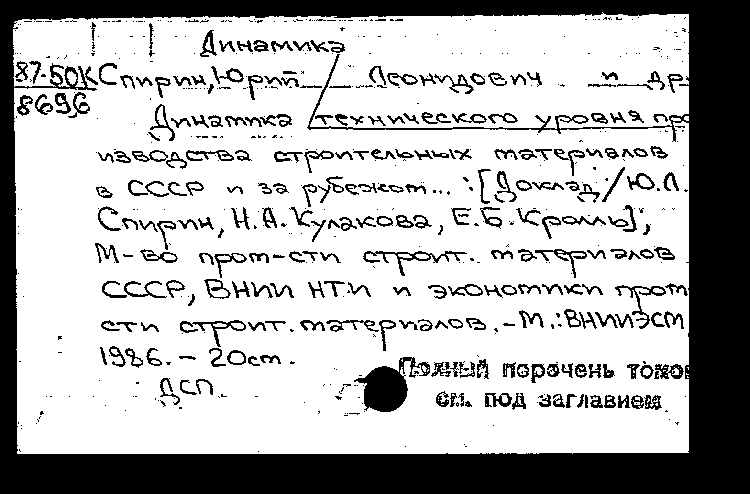 Динамика
87-50К Спирин, Юрий Леонидович и др.
8696
Динамика технического уровня про
изводства строительных материалов
в СССР и за рубежом... : [Доклад / Ю.Л.
Спирин, Н.А. Кулакова, Е.Б. Кролль],
М-во пром-сти строит. материалов
СССР, ВНИИ НТИ и экономики пром-
сти строит. материалов. - М.: ВНИИЭСМ,
1986. - 20см.
ДСП.
Полный перечень томов
см. под заглавием